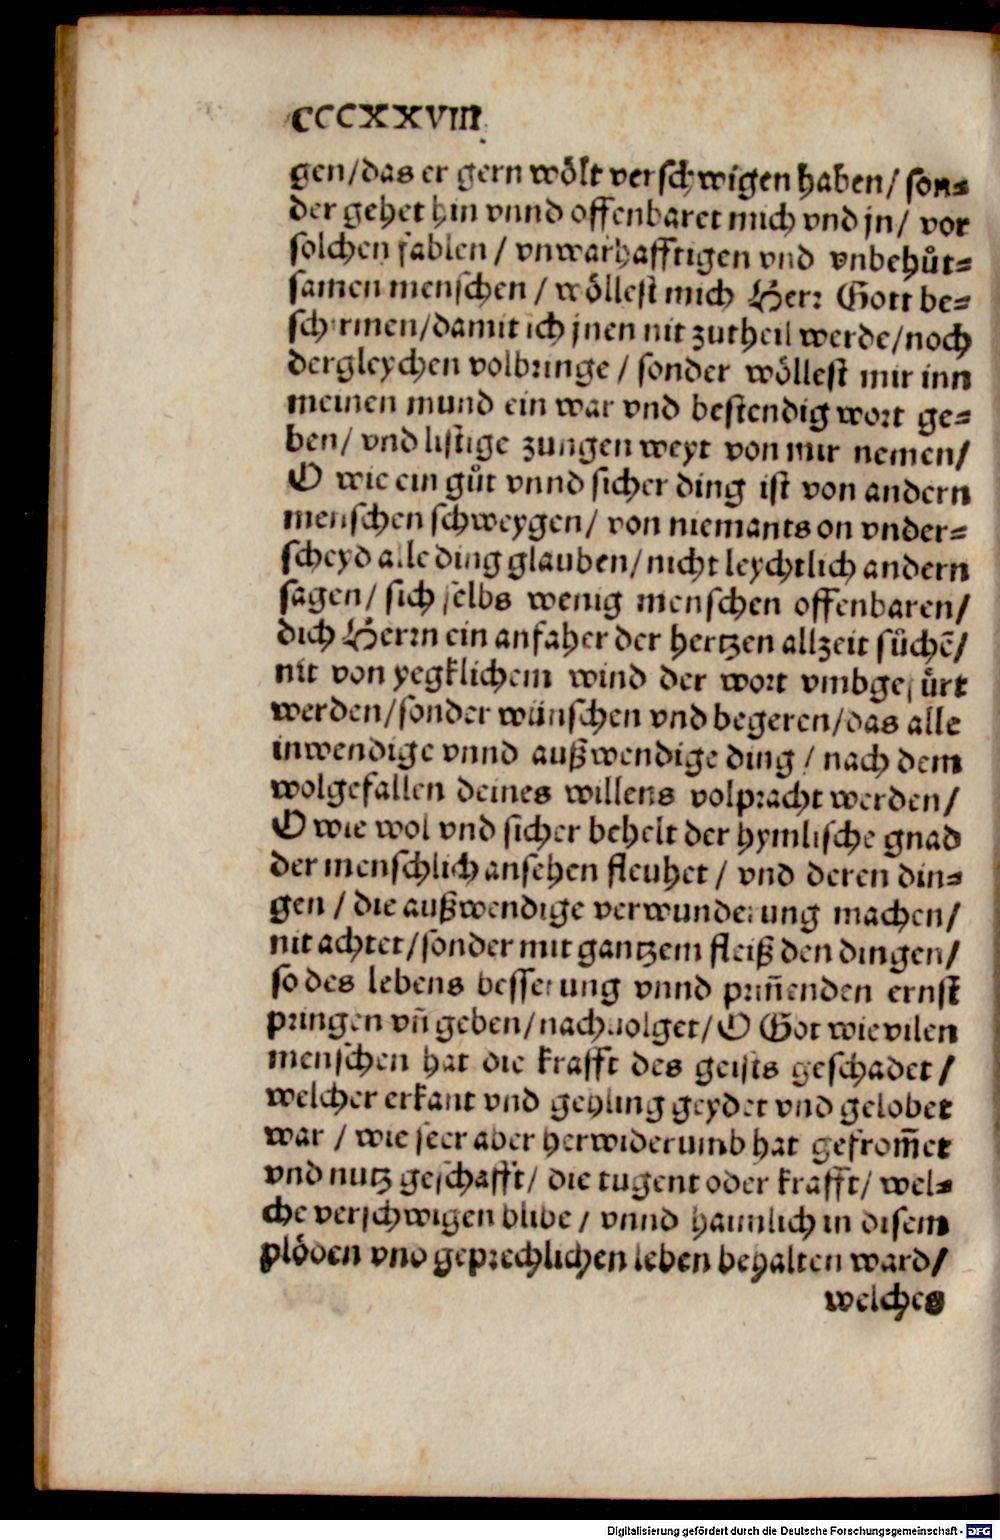 CCCXXVIII.
gen/das er gern wölt verschwigen haben/ son=
der gehet hin vnnd offenbaret mich vnd jn/ vor
solchen fablen / vnwarhafftigen vnd vnbehůt=
samen menschen / wöllest mich Herr Gott be=
schirmen/damit ich jnen nit zutheil werde/noch
dergleychen volbringe / sonder wöllest mir inn
meinen mund ein war vnd bestendig wort ge=
ben/ vnd listige zungen weyt von mir nemen/
O wie ein gůt vnnd sicher ding ist von andern
menschen schweygen/ von niemants on vnder=
scheyd alle ding glauben/nicht leychtlich andern
sagen/ sich selbs wenig menschen offenbaren/
dich Herrn ein anfaher der hertzen allzeit sůchē/
nit von yegklichem wind der wort vmbgefůrt
werden/sonder wünschen vnd begeren/das alle
inwendige vnnd außwendige ding / nach dem
wolgefallen deines willens volpracht werden/
O wie wol vnd sicher behelt der hymlische gnad
der menschlich ansehen fleuhet / vnd deren din=
gen / die außwendige verwunderung machen/
nit achtet/sonder mit gantzem fleiß den dingen/
so des lebens besserung vnnd prin̄enden ernst
pringen vn̄ geben/nachuolget/O Got wie vilen
menschen hat die krafft des geists geschadet /
welcher erkant vnd gehling geydet vnd gelobet
war / wie seer aber herwiderumb hat gefrom̄et
vnd nutz geschafft/ die tugent oder krafft/ wel=
che verschwigen blibe / vnnd haimlich in disem
plöden vnd geprechlichen leben behalten ward/
welches
Digitalisierung gefördert durch die Deutsche Forschungsgemeinschaft - DFG